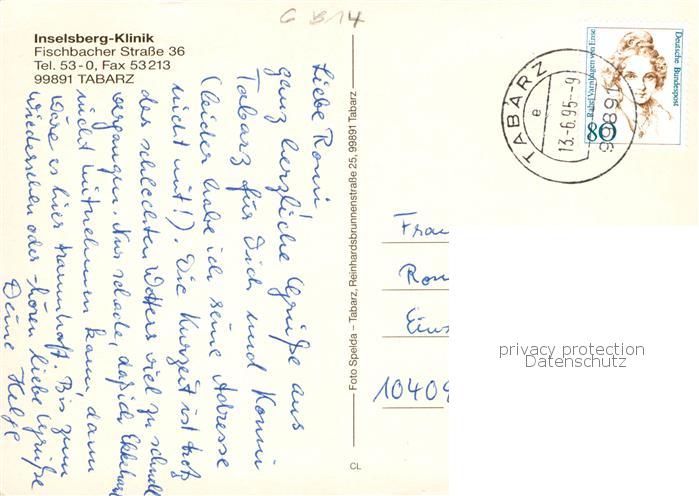 G B14
Inselsberg-Klinik
Fischbacher Straße 36
Tel. 53-0, Fax 53213
99891 TABARZ
Liebe Romi
ganz herzliche Grüße aus
Tabarz für Dich und Konni
(leider habe ich seine Adresse
nicht mit!). Die Kurzeit ist trotz
des schlechten Wetters viel zu schnell
vergangen. Nur schade, daß ich Ekkehard
nicht mitnehmen kann, dann
wäre es hier traumhaft. Bis zum
wiedersehen oder -hören liebe Grüße
Deine Helge
Foto Spelda – Tabarz, Reinhardsbrunnenstraße 25, 99891 Tabarz
CL
Deutsche Bundespost
Rahel Varnhagen von Ense
80
TABARZ
e
13.-6.95-9
99891
Frau
10409
privacy protection
Datenschutz